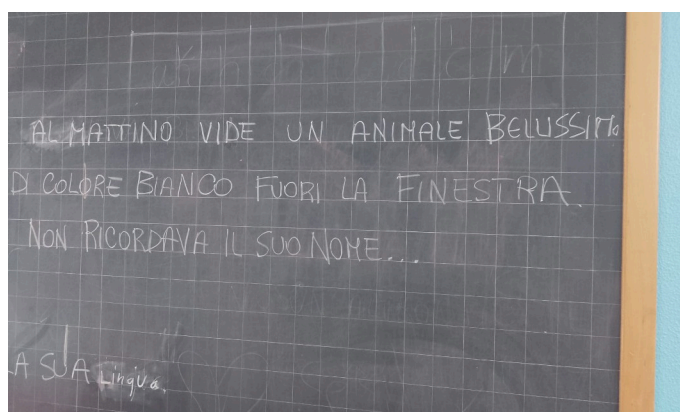 AL MATTINO VIDE UN ANIMALE BELLISSIMO
DI COLORE BIANCO FUORI LA FINESTRA.
NON RICORDAVA IL SUO NOME...
A SUA Lingua.